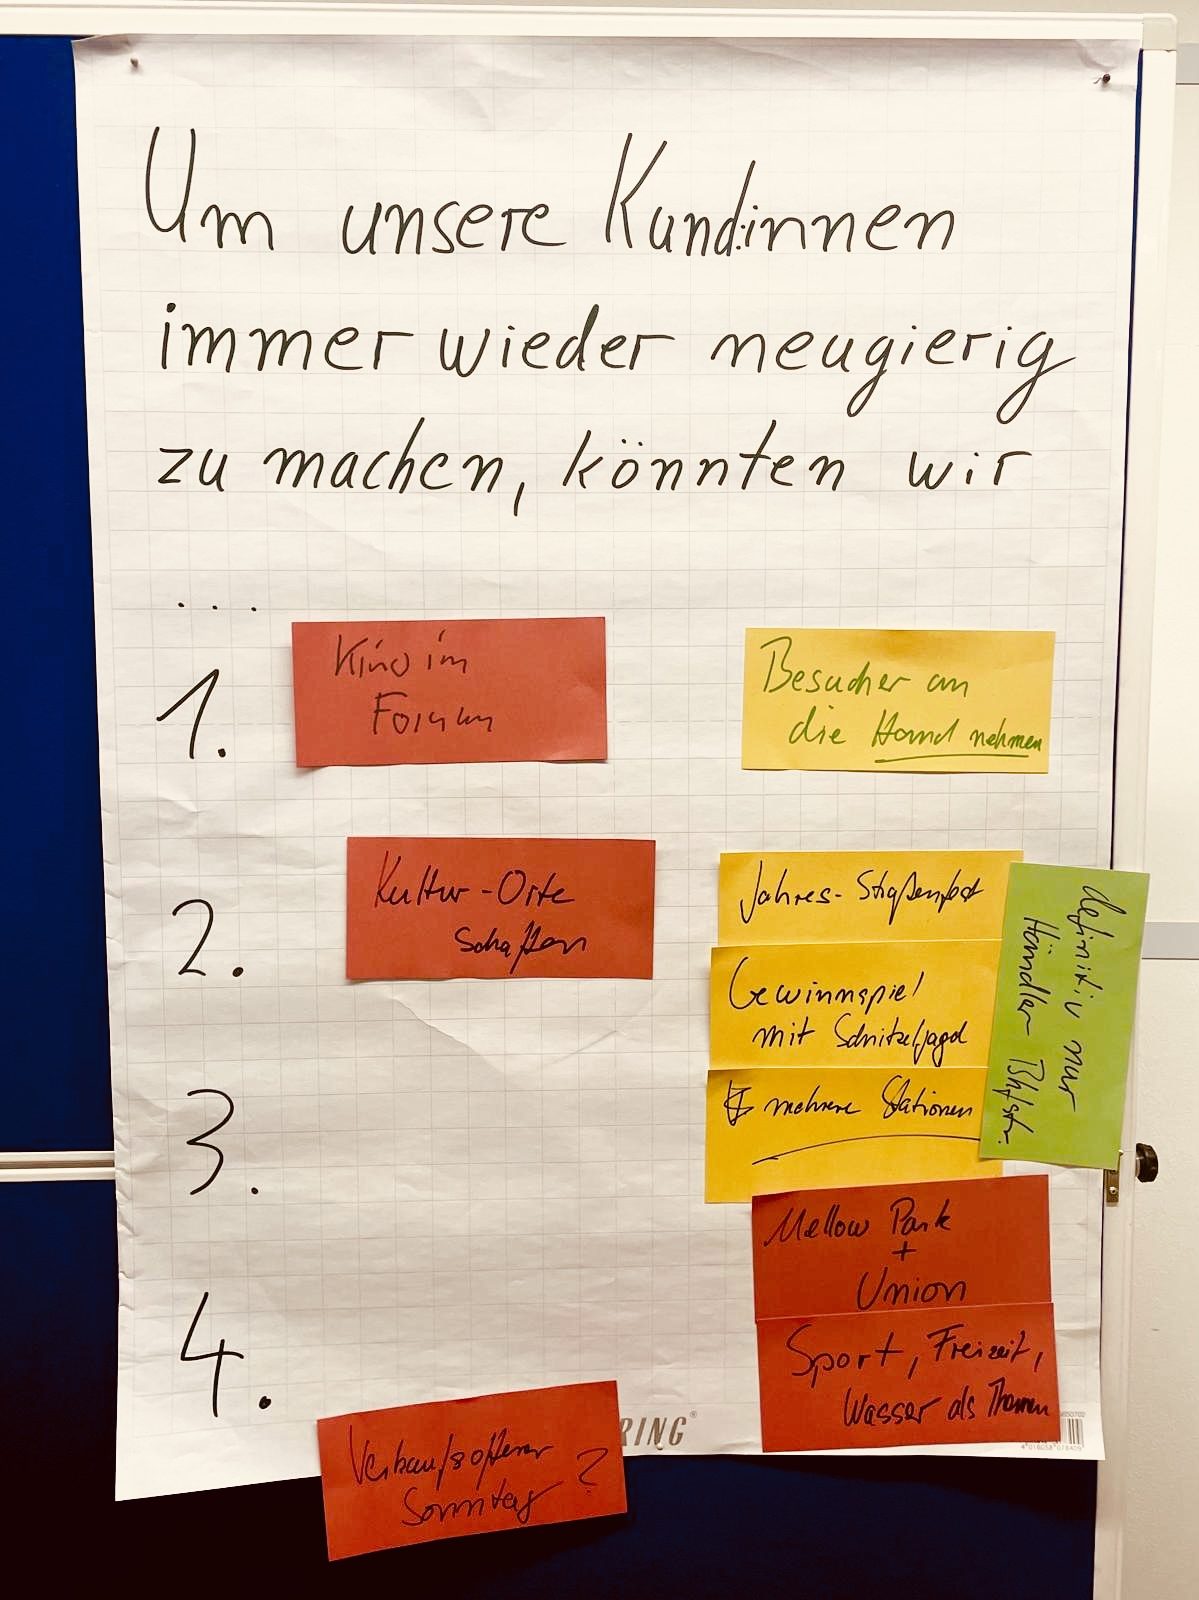 Um unsere Kund:innen
immer wieder neugierig
zu machen, könnten wir
...
1.
Kino im
Forum
Besucher an
die Hand nehmen
2.
Kultur-Orte
schaffen
Jahres-Straßenfest
Gewinnspiel
mit Schnitzeljagd
mehrere Stationen
definitiv nur
Händler
3.
Mellow Park
+
Union
4.
Sport, Freizeit,
Wasser als Themen
RING®
4 016058 078409
Verkaufsoffener
Sonntag ?